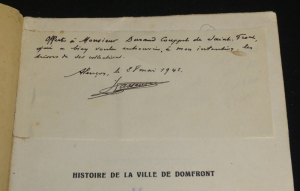 Offert à Monsieur Durand Couppel de Saint Front
qui a bien voulu entrouvrir, à mon intention, les
trésors de ses collections.
Alençon, le 28 mai 1941
HISTOIRE DE LA VILLE DE DOMFRONT